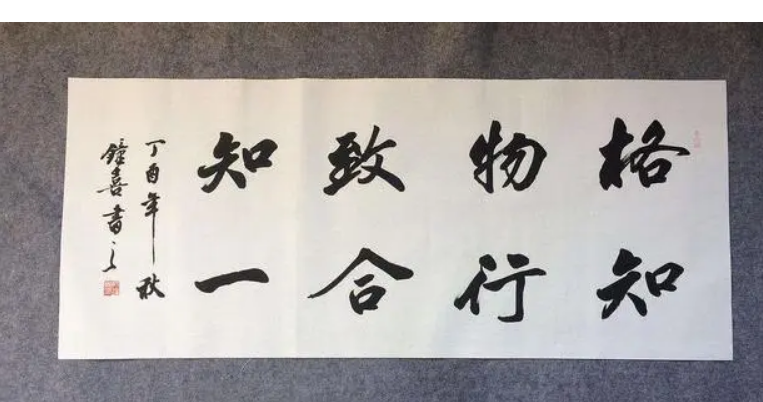 格物致知
知行合一
丁酉年秋
鐘喜書之